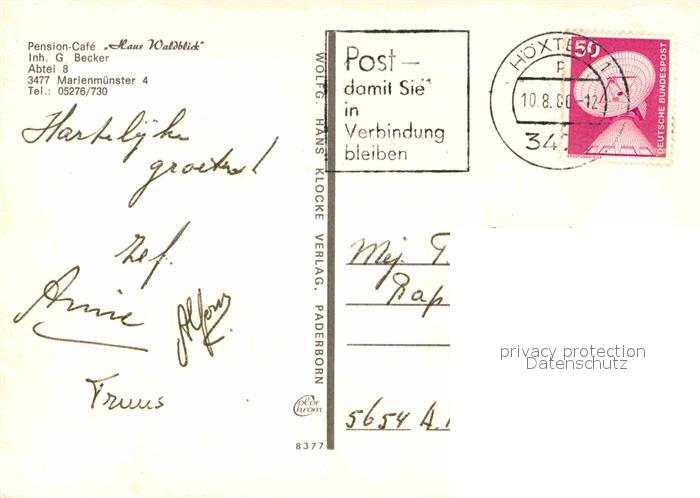 Pension-Café „Haus Waldblick"
Inh. G. Becker
Abtei 8
3477 Marienmünster 4
Tel.: 05276/730
Hartelijke
groeten!
Zef.
Annie
Alfons
Truus
WOLFG. HANS KLOCKE VERLAG, PADERBORN
Color
Chrom
8377
Post –
damit Sie
in
Verbindung
bleiben
HÖXTER 1
10.8.80-12
347
50
DEUTSCHE BUNDESPOST
ERDEFUNKSTELLE
Mej. T.
Rap
5654 A.
privacy protection
Datenschutz